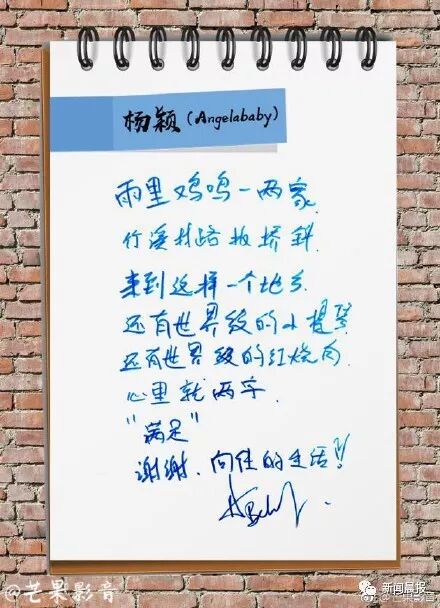 杨颖(Angelababy)
雨里鸡鸣一两家
竹溪村路板桥斜
来到这样一个地方
还有世界级的小提琴
还有世界级的红烧肉
心里就两字
"满足"
谢谢、向往的生活!!
@芒果影音
新闻晨报